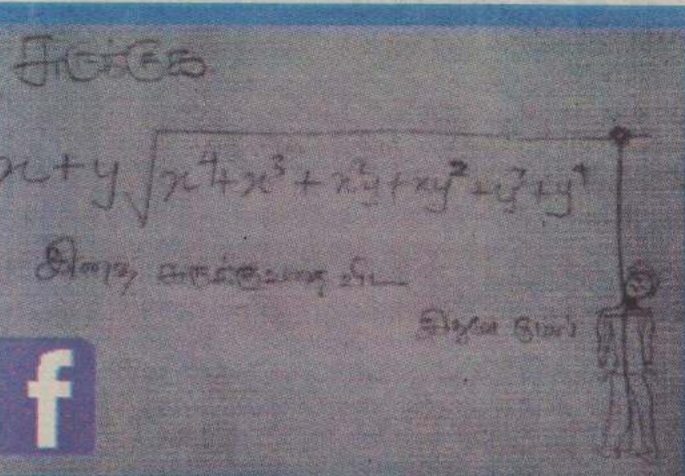 சுருக்குக
x+y√x⁴+x³+x²y+xy²+y³+y⁴
இதை சுருக்குவதை விட
இதுவே மேல்
f